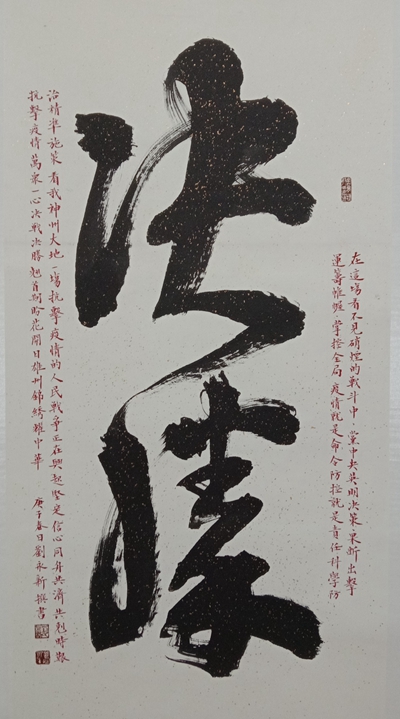 决勝
在這場看不見硝煙的戰斗中，黨中央英明决策果断出擊
運籌帷幄，掌控全局疫情就是命令防控就是責任科學防
治精準施策看我神州大地一場抗擊疫情的人民戰争正在興起堅定信心同舟共濟共剋時艱
抗擊疫情萬衆一心决戰决勝翹首期盼花開日雄州錦綉耀中華
庚子春日劉永新撰書